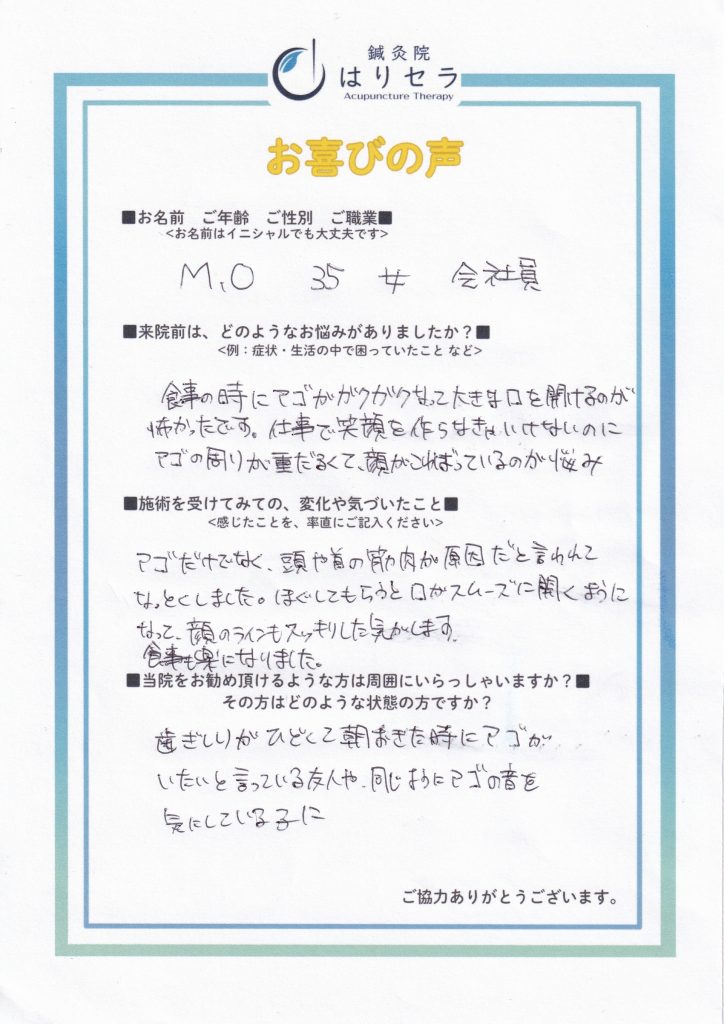 鍼灸院
はりセラ
Acupuncture Therapy
お喜びの声
■お名前　ご年齢　ご性別　ご職業■
<お名前はイニシャルでも大丈夫です>
M,O　35　女　会社員
■来院前は、どのようなお悩みがありましたか？■
<例：症状・生活の中で困っていたこと など>
食事の時にアゴがガクガクなって大きな口を開けるのが
怖かったです。仕事で笑顔を作らなきゃいけないのに
アゴの周りが重だるくて、顔がこわばっているのが悩み
■施術を受けてみての、変化や気づいたこと■
<感じたことを、率直にご記入ください>
アゴだけでなく、頭や首の筋肉が原因だと言われて
なっとくしました。ほぐしてもらうと口がスムーズに開くように
なって、顔のラインもスッキリした気がします。
食事も楽になりました。
■当院をお勧め頂けるような方は周囲にいらっしゃいますか？■
その方はどのような状態の方ですか？
歯ぎしりがひどくて朝おきた時にアゴが
いたいと言っている友人や、同じようにアゴの音を
気にしている子に
ご協力ありがとうございます。